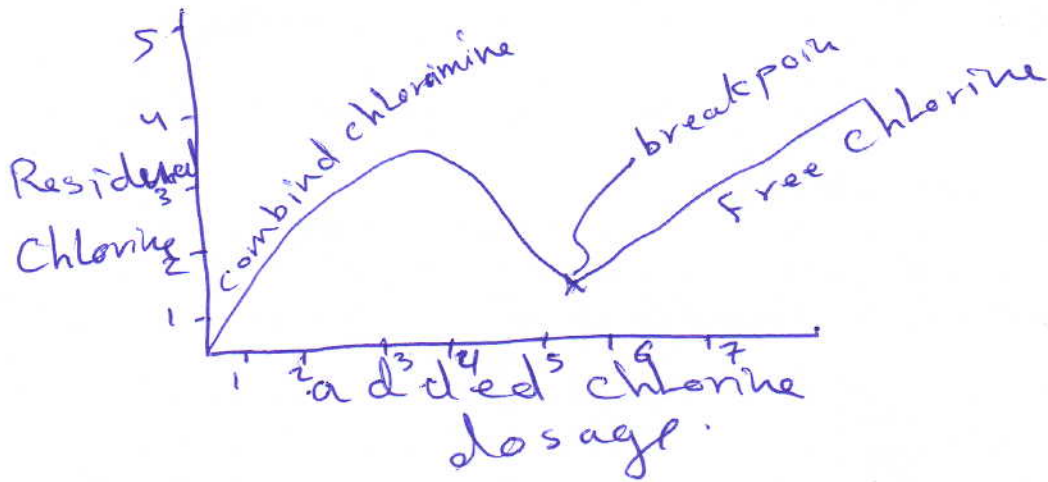 5
4
3
2
1
Residual
Chlorine
combind chloramine
breakpoin
Free chlorine
1 2 3 4 5 6 7
added chlorine
dosage.